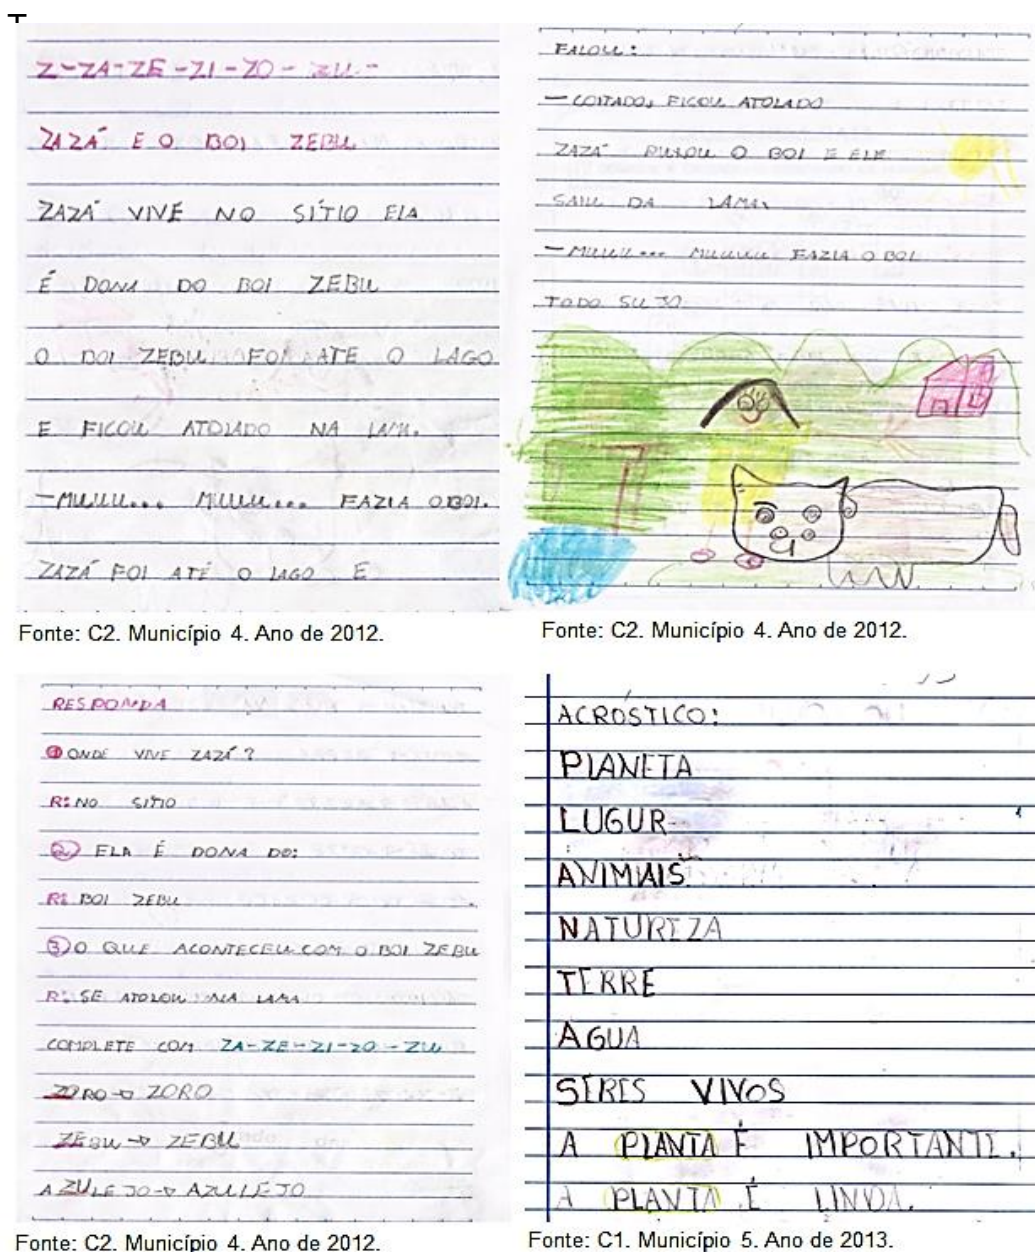 Z-ZA-ZE-ZI-ZO-ZU-
ZAZÁ E O BOI ZEBU
ZAZÁ VIVE NO SÍTIO ELA
É DONA DO BOI ZEBU
O BOI ZEBU FOI ATE O LAGO
E FICOU ATOLADO NA LAMA.
-MUUU... MUUU... FAZIA O BOI.
ZAZÁ FOI ATÉ O LAGO E
Fonte: C2. Município 4. Ano de 2012.
FALOU:
- COITADO, FICOU ATOLADO
ZAZÁ PUXOU O BOI E ELE
SAIU DA LAMA.
-MUUUU... MUUUUU FAZIA O BOI
TODO SUJO.
Fonte: C2. Município 4. Ano de 2012.
RESPONDA
1 ONDE VIVE ZAZÁ?
R: NO SITIO
2 ELA É DONA DO:
R: BOI ZEBU.
3) O QUE ACONTECEU COM O BOI ZEBU
R: SE ATOLOU NA LAMA
COMPLETE COM ZA-ZE-ZI-ZO-ZU
ZORO → ZORO
ZEBU → ZEBU
AZULEJO → AZULEJO
Fonte: C2. Município 4. Ano de 2012.
ACRÓSTICO:
PLANETA
LUGUR
ANIMIAIS
NATUREZA
TERRE
AGUA
SERES VIVOS
A PLANTA É IMPORTANTE.
A PLANTA É LINDA.
Fonte: C1. Município 5. Ano de 2013.